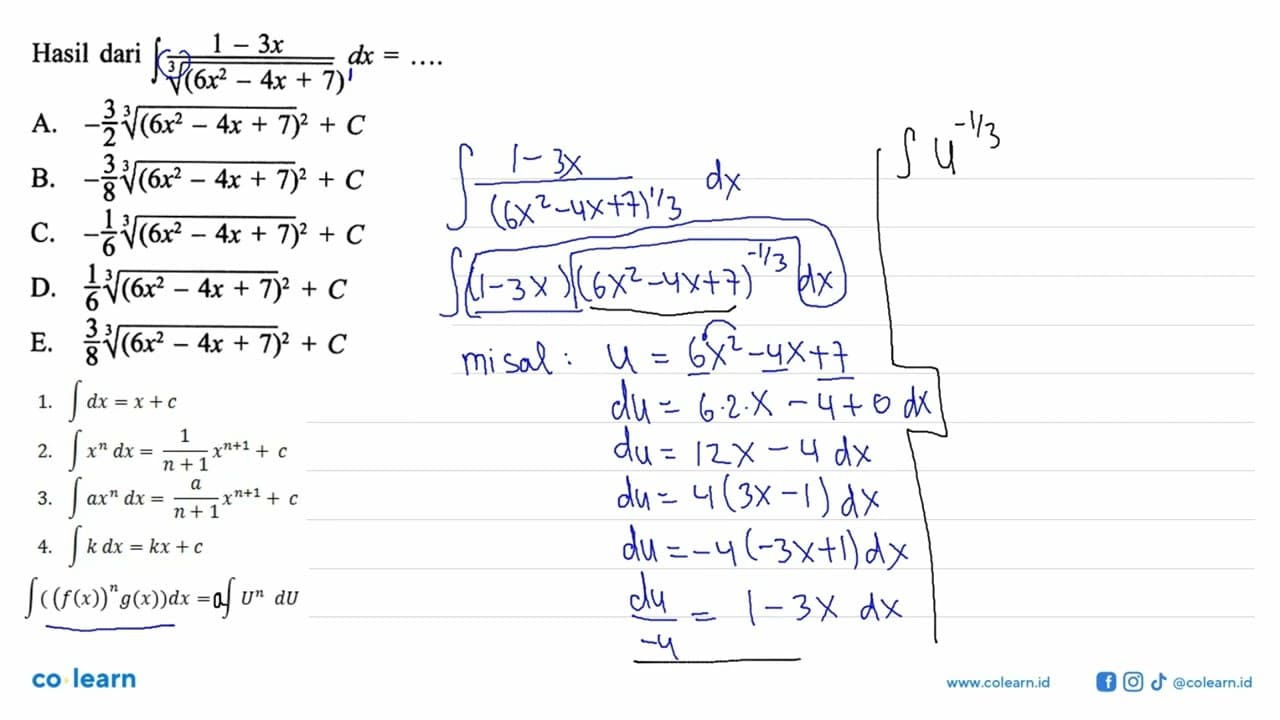 Hasil dari ∫ (1 − 3x)/∛(6x² − 4x + 7)¹ dx = ....
A. −3/2 ∛(6x² − 4x + 7)² + C
B. −3/8 ∛(6x² − 4x + 7)² + C
C. −1/6 ∛(6x² − 4x + 7)² + C
D. 1/6 ∛(6x² − 4x + 7)² + C
E. 3/8 ∛(6x² − 4x + 7)² + C
1. ∫ dx = x + c
2. ∫ xⁿ dx = 1/(n + 1) xⁿ⁺¹ + c
3. ∫ axⁿ dx = a/(n + 1) xⁿ⁺¹ + c
4. ∫ k dx = kx + c
∫((f(x))ⁿ g(x))dx = a∫ Uⁿ dU
∫ (1 − 3x)/(6x² − 4x + 7)^1/3 dx
∫ (1 − 3x)(6x² − 4x + 7)^−1/3 dx
misal : u = 6x² − 4x + 7
du = 6·2·x − 4 + 0 dx
du = 12x − 4 dx
du = 4(3x − 1) dx
du = −4(−3x + 1) dx
du/−4 = 1 − 3x dx
∫ u^−1/3
co learn
www.colearn.id
@colearn.id